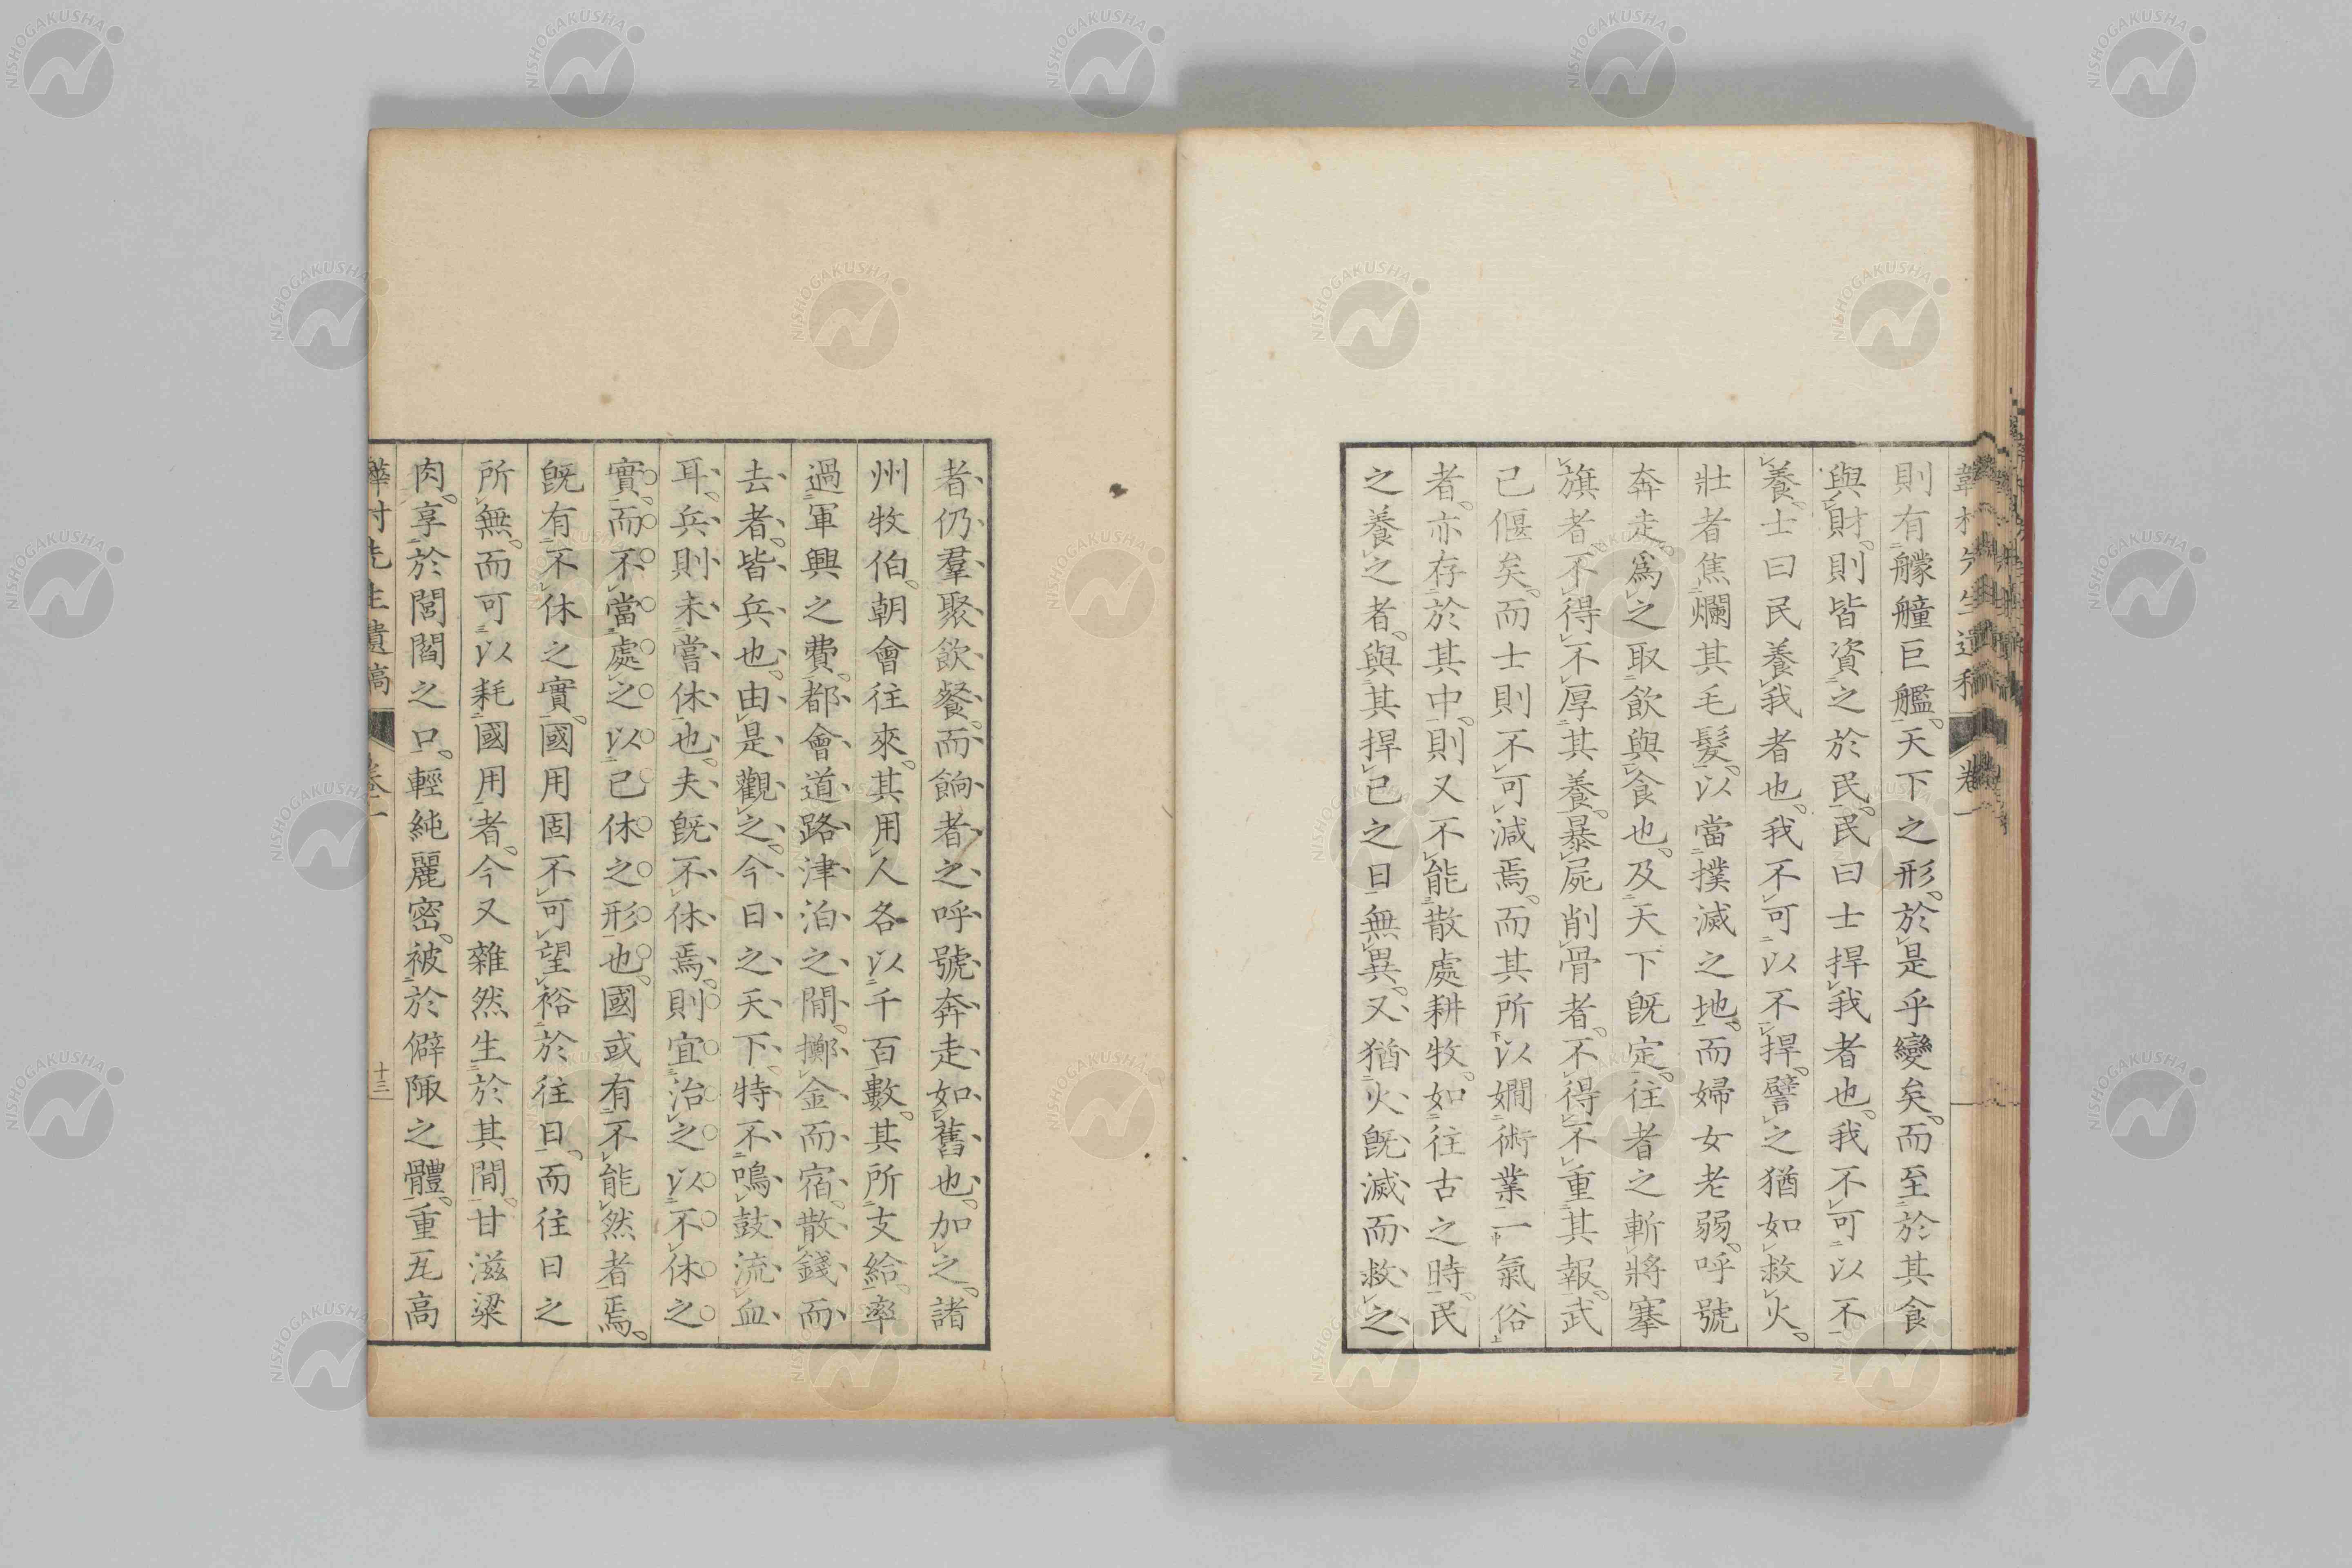 則有艨艟巨艦。天下之形。於是乎變矣。而至於其食
與財。則皆資之於民。民曰士捍我者也。我不可以不
養。士曰民養我者也。我不可以不捍。譬之猶如救火。
壯者焦爛其毛髮。以當撲滅之地。而婦女老弱。呼號
奔走。爲之取飲與食也。及天下既定。往者之斬將搴
旗者不得不厚其養。暴屍削骨者。不得不重其報。武
已偃矣。而士則不可減焉。而其所以嫺術業一氣俗
者。亦存於其中。則又不能散處耕牧。如往古之時。民
之養之者。與其捍己之日無異。又猶火既滅而救之
者仍羣聚飲餐。而餉者之呼號奔走如舊也。加之。諸
州牧伯。朝會往來。其用人各以千百數。其所支給。率
過軍興之費。都會道路津泊之間。擲金而宿。散錢而
去者。皆兵也。由是觀之。今日之天下。特不鳴鼓流血
耳。兵則未嘗休也。夫既不休焉。則宜治之以不休之
實。而不當處之以已休之形也。國或有不能然者焉。
既有不休之實。國用固不可望裕於往日。而往日之
所無。而可以耗國用者。今又雜然生於其間。甘滋粱
肉。享於閭閻之口。輕純麗密。被於僻陬之體。重瓦高
先生遺稿 卷一 十三